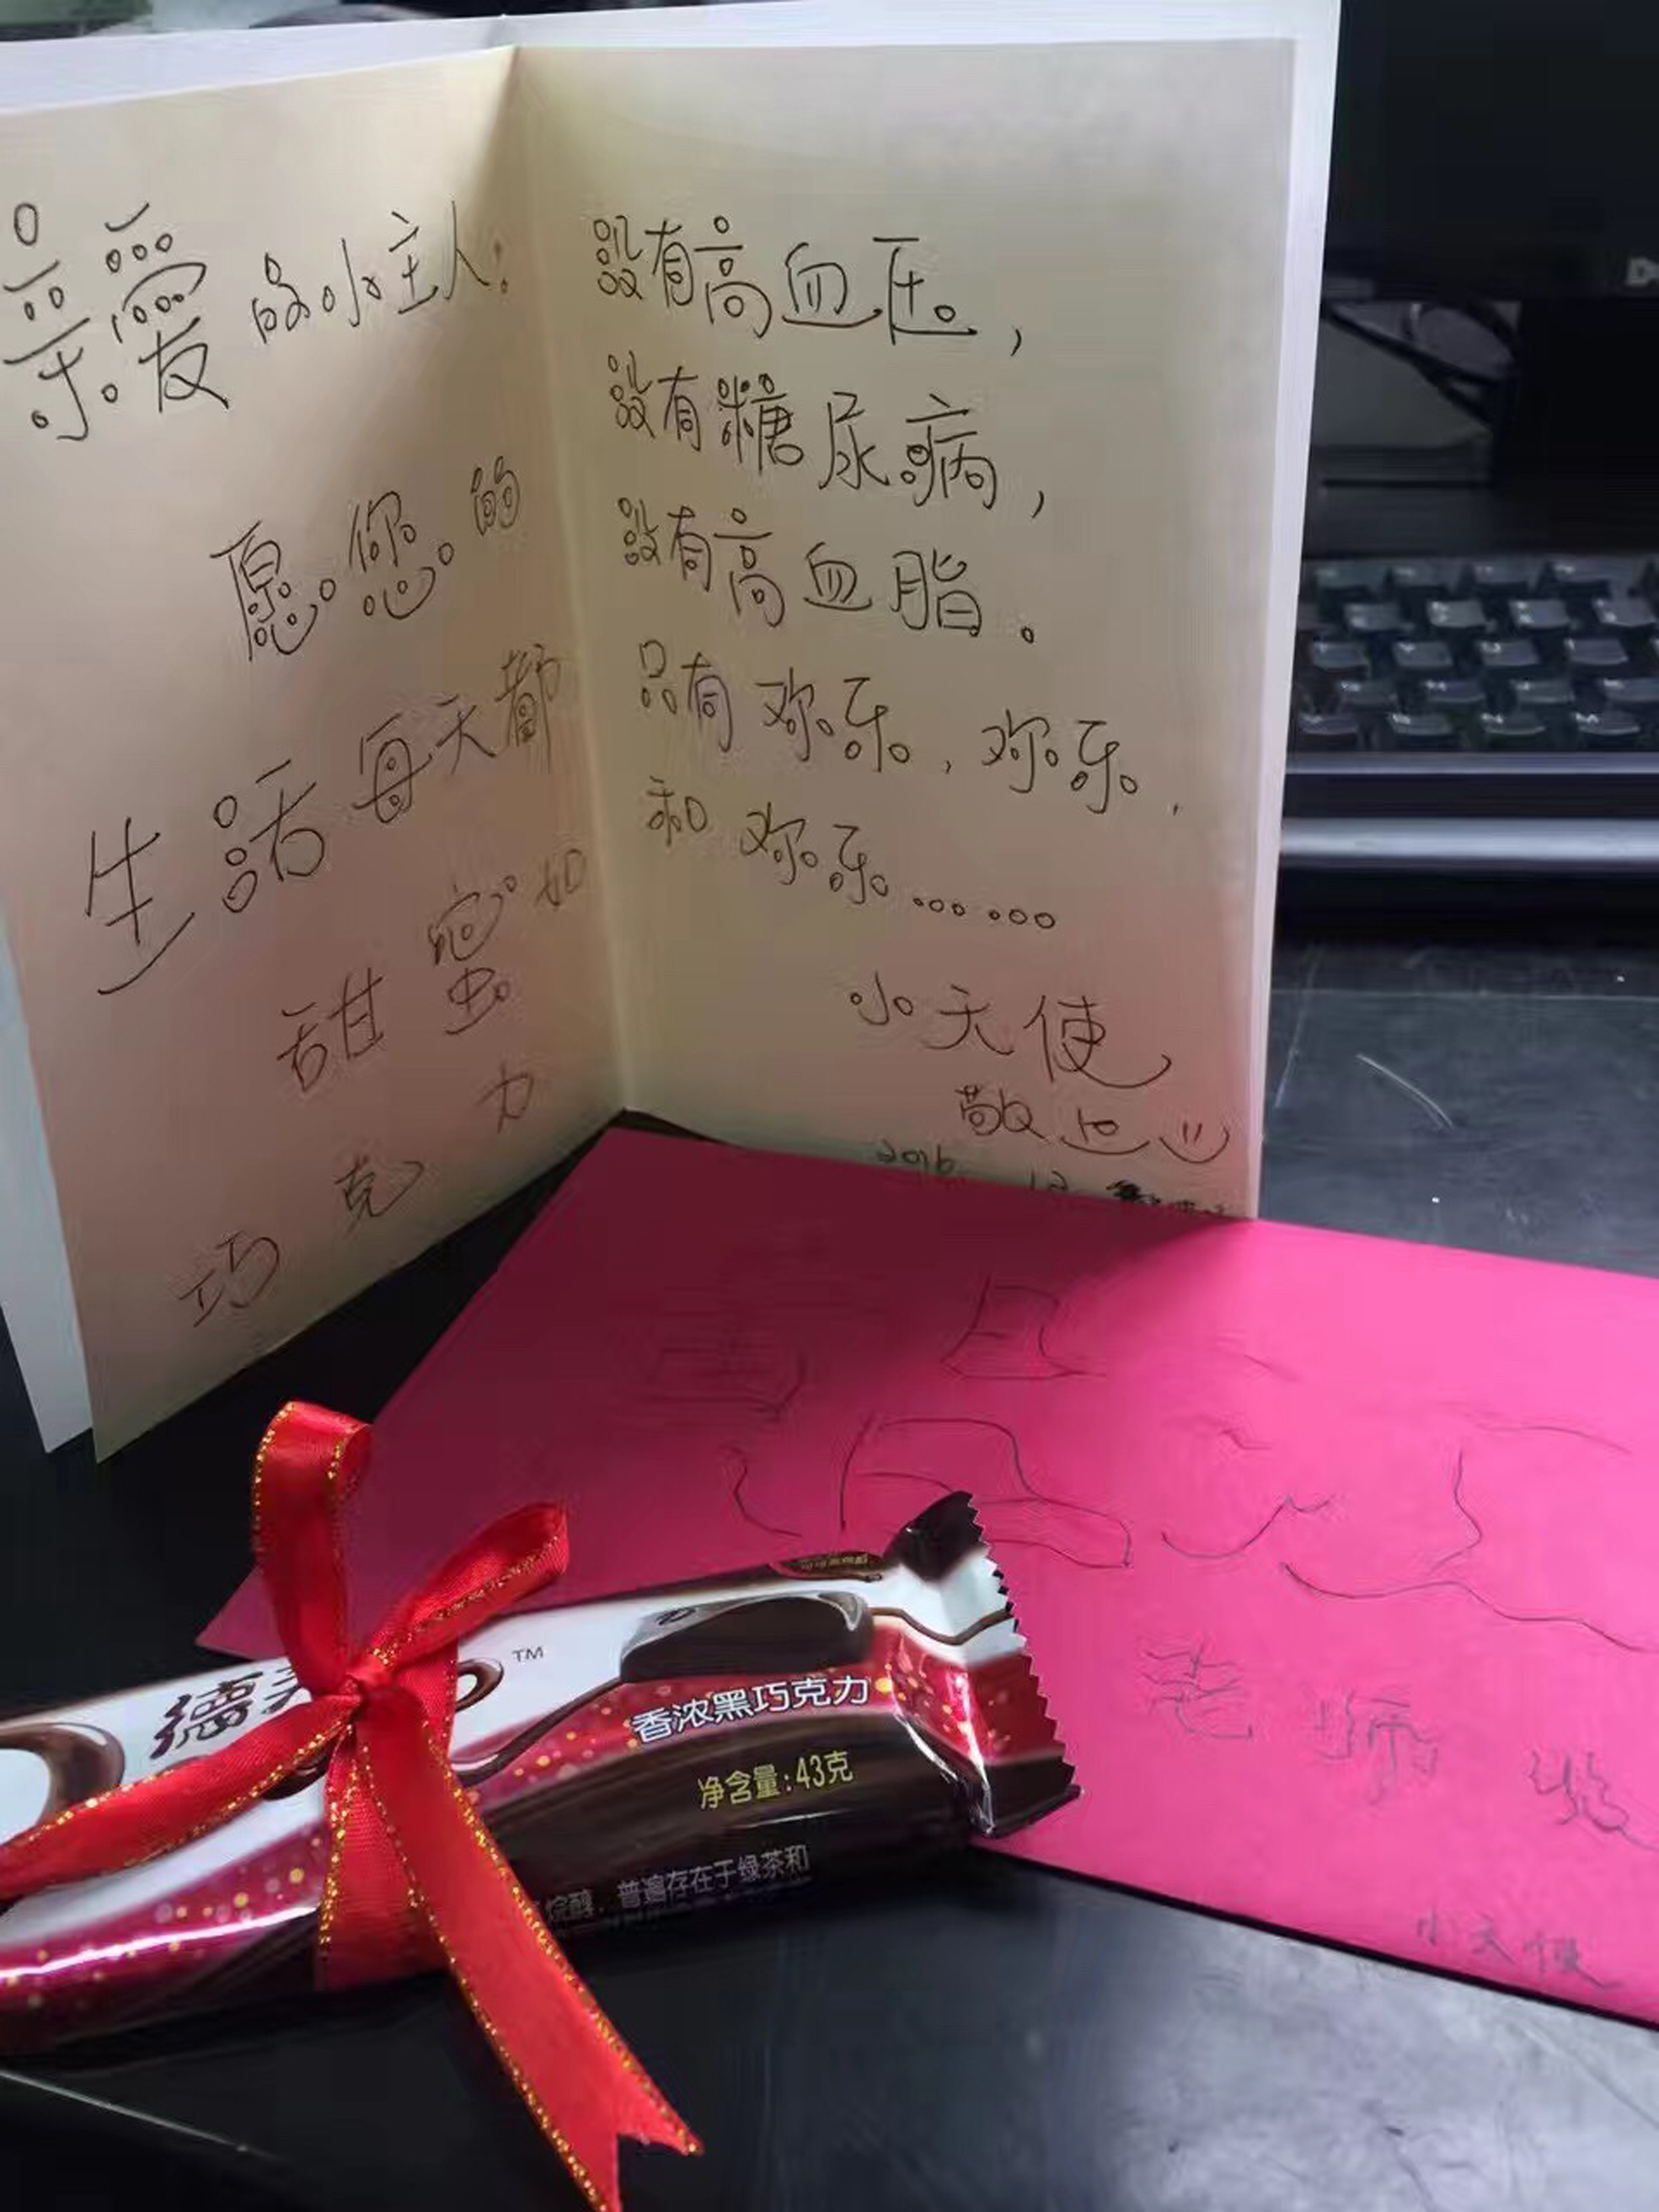 亲爱的小主人：
愿您的
生活每天都
甜蜜如
巧克力
没有高血压，
没有糖尿病，
没有高血脂。
只有欢乐，欢乐，
和欢乐……
小天使
敬上
老师收
小天使
德
TM
香浓黑巧克力
净含量:43克
烷醇，普遍存在于绿茶和